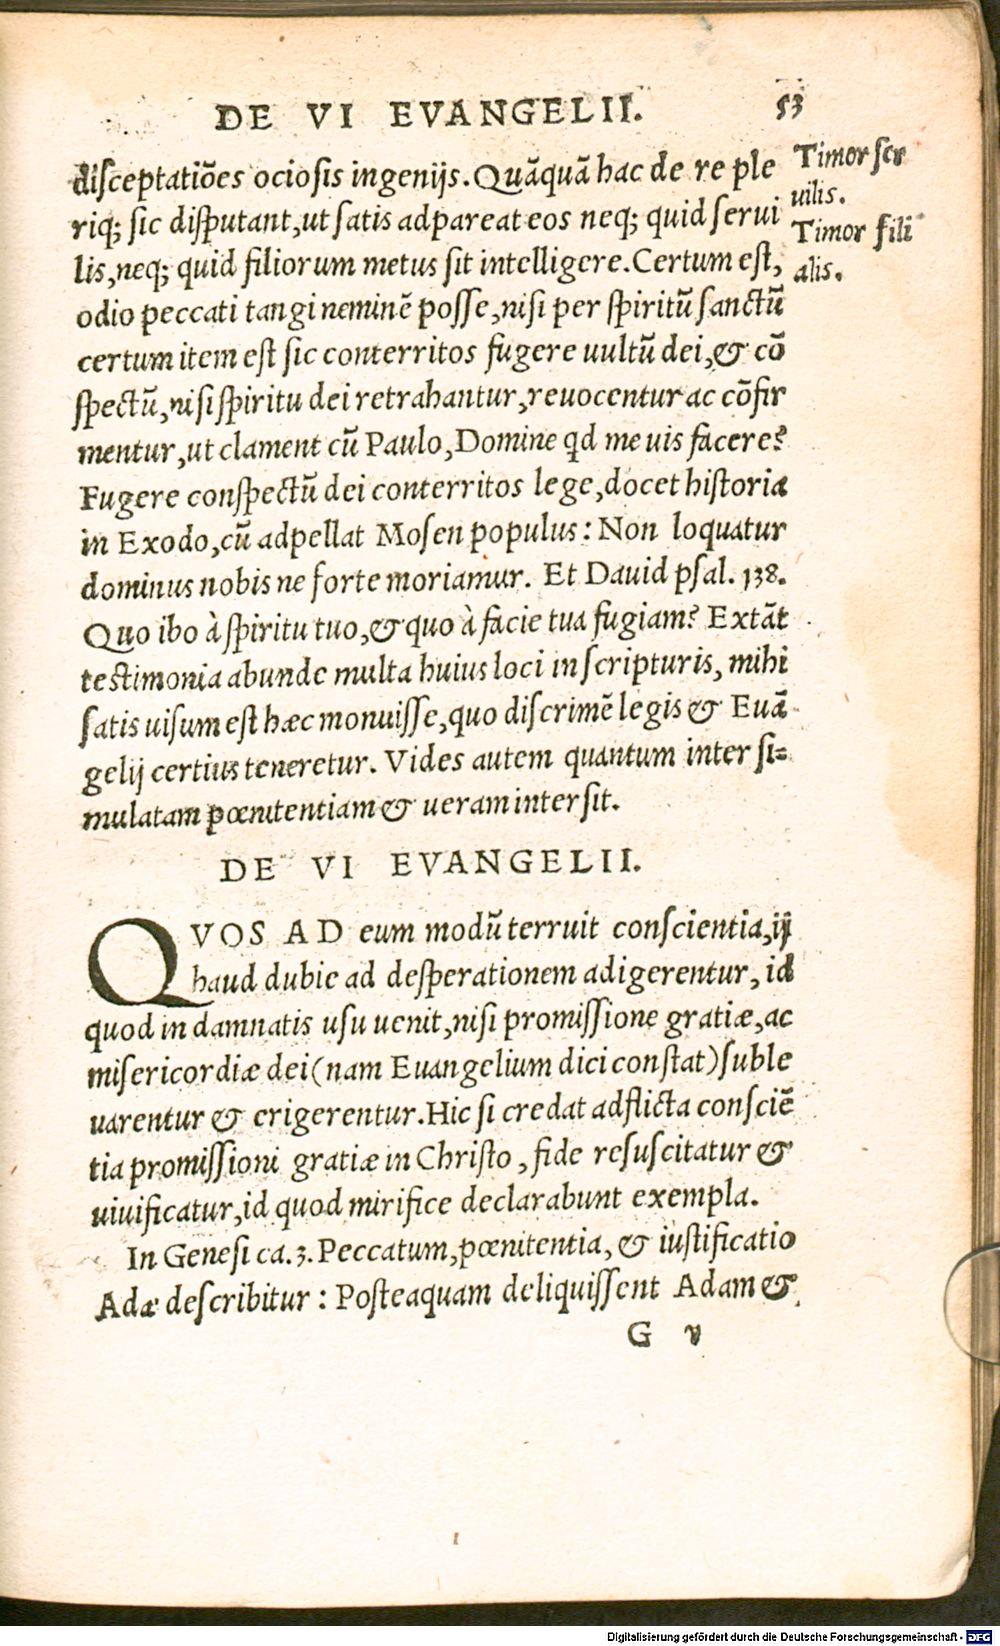 DE VI EVANGELII. 53
diſceptatiões ocioſis ingenijs. Quãquã hac de re ple
riq; ſic diſputant, ut ſatis adpareat eos neq; quid ſerui
lis, neq; quid filiorum metus ſit intelligere. Certum eſt,
odio peccati tangi neminẽ poſſe, niſi per ſpiritũ ſanctũ
certum item eſt ſic conterritos fugere uultũ dei, & cõ
ſpectũ, niſi ſpiritu dei retrahantur, reuocentur ac cõfir
mentur, ut clament cũ Paulo, Domine qd me uis facere?
Fugere conſpectũ dei conterritos lege, docet hiſtoria
in Exodo, cũ adpellat Moſen populus: Non loquatur
dominus nobis ne forte moriamur. Et Dauid pſal. 138.
Quo ibo à ſpiritu tuo, & quo à facie tua fugiam? Extãt
teſtimonia abunde multa huius loci in ſcripturis, mihi
ſatis uiſum eſt hæc monuiſſe, quo diſcrimẽ legis & Euã
gelij certius teneretur. Vides autem quantum inter ſi=
mulatam pœnitentiam & ueram interſit.
Timor ſer
uilis.
Timor fili
alis.
DE VI EVANGELII.
QVOS AD eum modũ terruit conſcientia, ij
haud dubie ad deſperationem adigerentur, id
quod in damnatis uſu uenit, niſi promiſſione gratiæ, ac
miſericordiæ dei (nam Euangelium dici conſtat) ſuble
uarentur & erigerentur. Hic ſi credat adflicta conſciẽ
tia promiſſioni gratiæ in Chriſto, fide reſuſcitatur &
uiuificatur, id quod mirifice declarabunt exempla.
In Geneſi ca. 3. Peccatum, pœnitentia, & iuſtificatio
Adæ deſcribitur: Poſteaquam deliquiſſent Adam &
G v
Digitalisierung gefördert durch die Deutsche Forschungsgemeinschaft - DFG